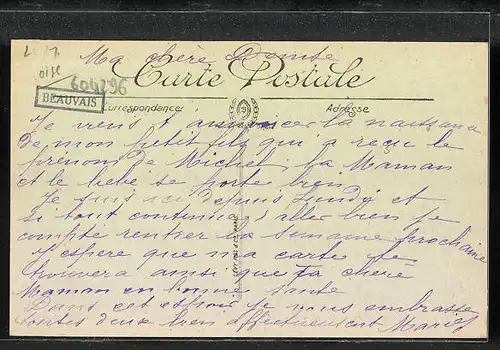 Ma chère Denise
604296
Carte Postale
BEAUVAIS
Correspondance
Adresse
Je viens t'annoncer la naissance
de mon petit fils qui a reçu le
prénom de Michel, la Maman
et le bébé se porte bien
Je suis ici depuis lundi et
si tout continue d'aller bien je
compte rentrer la semaine prochaine
J'espère que ma carte te
trouvera ainsi que ta chère
Maman en bonne santé
Dans cet espoir je vous embrasse
toutes deux bien affectueusement